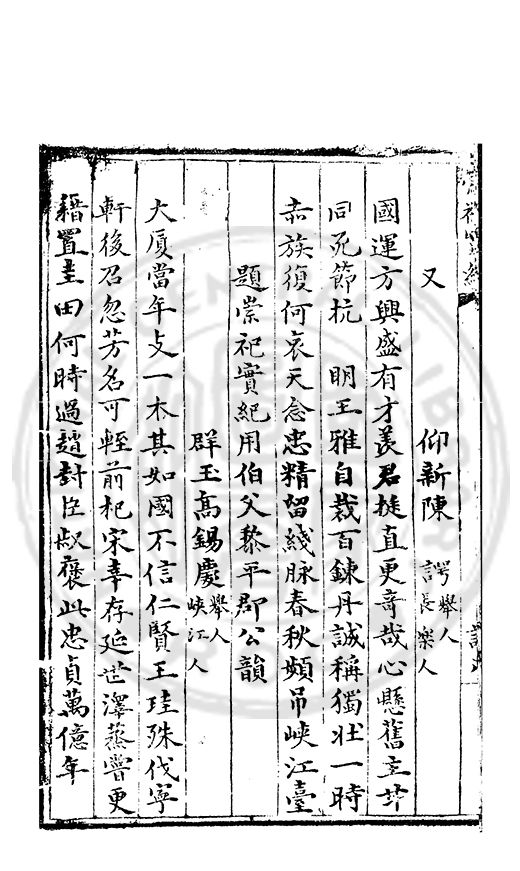 又　仰新陳 諤舉人長樂人
國運方興盛有才羨君挺直更竒哉心懸舊主甘
同死節抗　明王雅自裁百鍊丹誠稱獨壯一時
赤族復何哀天念忠精留綫脉春秋頻吊峽江臺
題崇祀實紀用伯父黎平郡公韻
群玉高錫慶 舉人峽江人
大厦當年支一木其如國不信仁賢王珪殊伐寧
軒後召忽芳名可輊前杞宋幸存延世澤蒸嘗更
藉置圭田何時過趙封臣叔褒此忠貞萬億年